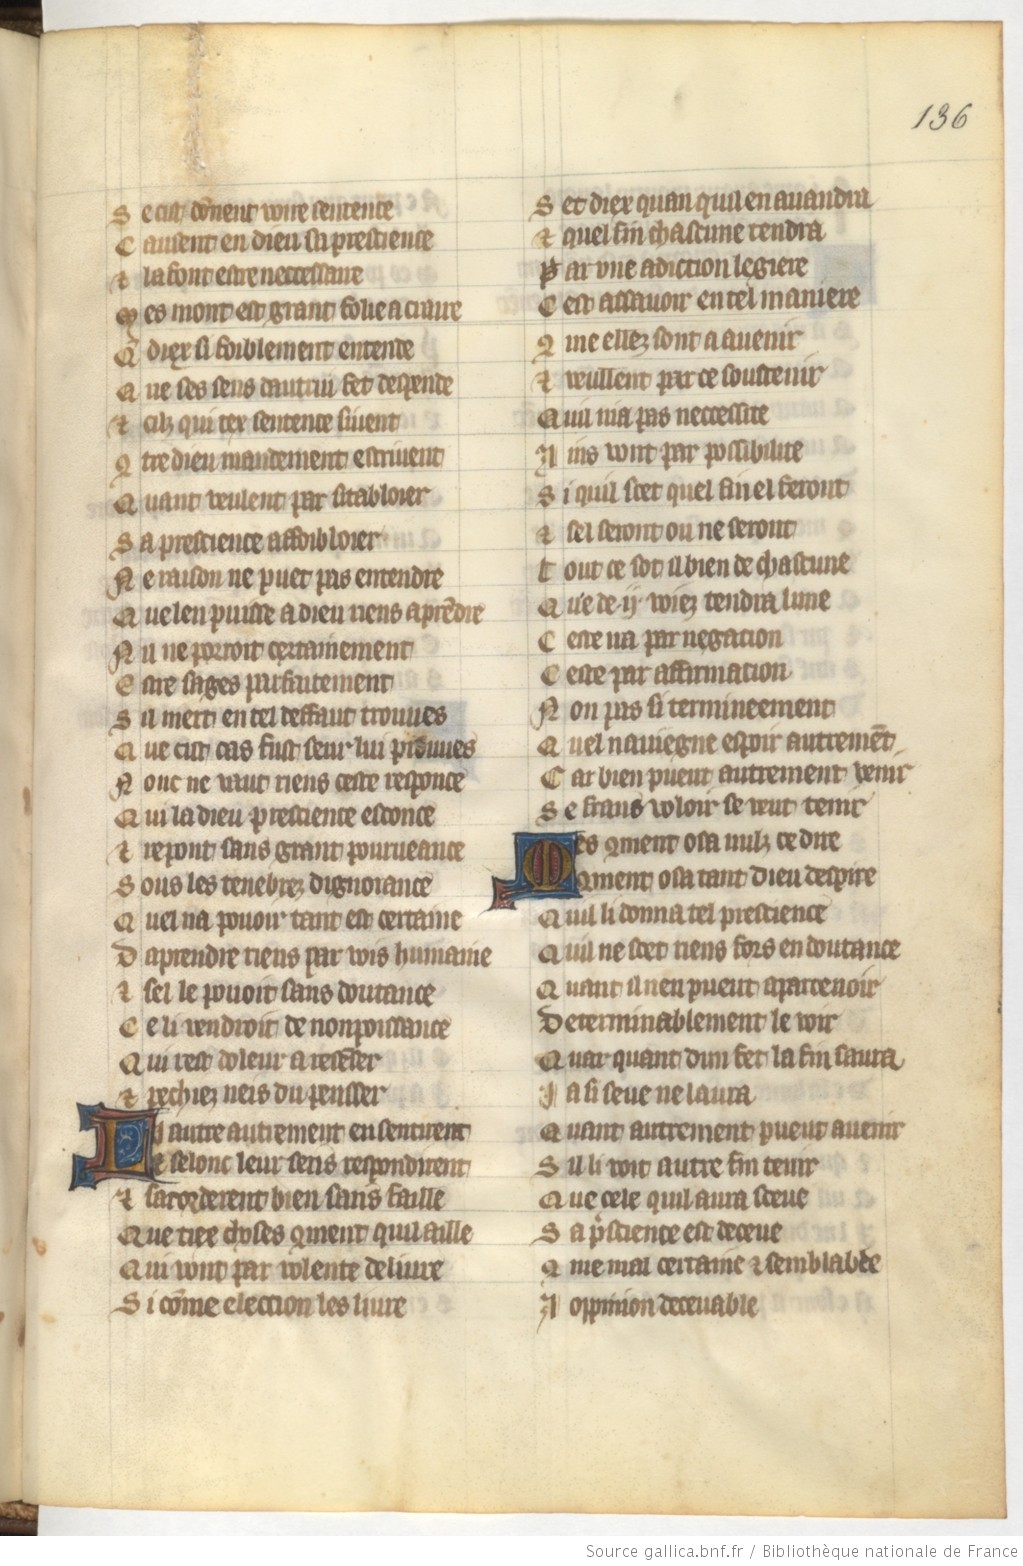 136
S e cist donnent voire sentence
C ausent en dieu sa prescience
⁊ la font estre neccessaire
M es mont est grant folie a craire
Q diex si foiblement entende
Q ue ses sens dautrui fet despende
⁊ cilz qui tex sentence sivent
9 tre dieu mandement estrivent
Q uant veulent par si tabloier
S a prescience affoibloier
N e raison ne puet pas entendre
Q ue len puisse a dieu riens aprẽdre
N il ne porroit certainement
E stre sages parfaitement
S il niert en tel deffaut trouves
Q ue cist cas fust seur lui prouves
N onc ne vaut riens ceste responce
Q ui la dieu prescience esconce
⁊ repont sans grant pourveance
S ous les tenebrez dignorance
Q uel na pouoir tant est certaine
D aprendre riens par vois humaine
⁊ sel le pouoit sans doutance
C e li vendroit de nonpoissance
Q ui rest doleur a recẽser
⁊ pechiez neis du pensser
L i autre autrement en sentirent
⁊ e selonc leur sens respondirent
⁊ sacorderent bien sans faille
Q ue tiex choses 9ment quil aille
Q ui vont par volente delivre
S i cõme election les livre
S et diex quan quil en avandra
⁊ quel fin chascune tendra
P ar une adiction legiere
C est assavoir en tel maniere
9 me ellez sont a avenir
⁊ veullent par ce soustenir
Q uil nia pas neccessite
A ins vont par possibilite
S i quil scet quel fin el feront
⁊ sel seront ou ne seront
T out ce sot il bien de chascune
Q ue de ·ij· voiez tendra lune
C este va par negacion
C este par affirmacion
N on pas si termineement
Q uel naviegne espoir autremẽt
C ar bien puent autrement venir
S e frans voloir se veut tenir
M es 9ment osa nulz ce dire
9ment osa tant dieu despire
Q uil li donna tel prescience
Q uil ne scet riens fors en doutance
Q uant il nen puent apartenoir
D eterminablement le voir
Q uar quant dun fet la fin saura
J a si seve ne laura
Q uant autrement puent avenir
S il li voit autre fin tenir
Q ue cele quil aura sceue
S a p̃science est deceue
9 me mal certaine ⁊ semblable
A oppinion decevable
Source gallica.bnf.fr / Bibliothèque nationale de France